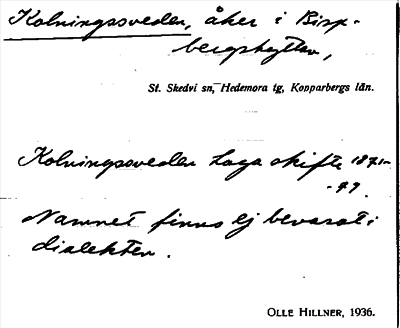 Kolningssveden, åker i Bisp-
bergshyttan,
St. Skedvi sn, Hedemora tg, Kopparbergs län.
Kolningssveden Laga skifte 1871-
-79.
Namnet finns ej bevarat i
dialekten.
OLLE HILLNER, 1936.